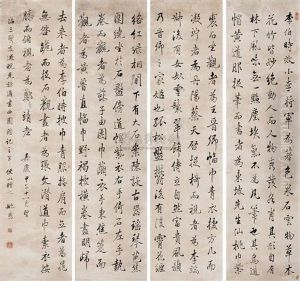 李伯時效小李將軍為著色泉石雲物草木
花竹皆妙絕動人而人物秀發各肖其形自有
林下風味無一點塵埃氣不為凡筆也其烏
帽黃道服捉筆而書者為東坡先生仙桃巾紫
裘而坐觀者為王晉卿幅巾青衣據方几而
凝竚者為丹陽蔡天啟捉椅而視者為李端叔
後有女奴雲鬟翠飾侍立自然富貴風韻
乃晉卿之家姬也孤松盤鬱上有凌霄纏
絡紅綠相間下有大石案陳設古器瑤琴芭蕉
圍繞坐於石盤傍道帽紫衣右手倚石左手執
卷而觀書者為蘇子由團巾繭衣手秉蕉箑而熟
視者為黃魯直幅巾野褐據橫卷畫淵明歸
去來者為李伯時披巾青服撫肩而立者為晁
無咎跪而捉石觀畫者為張文潛道巾素衣按
膝而俯視者為鄭靖老